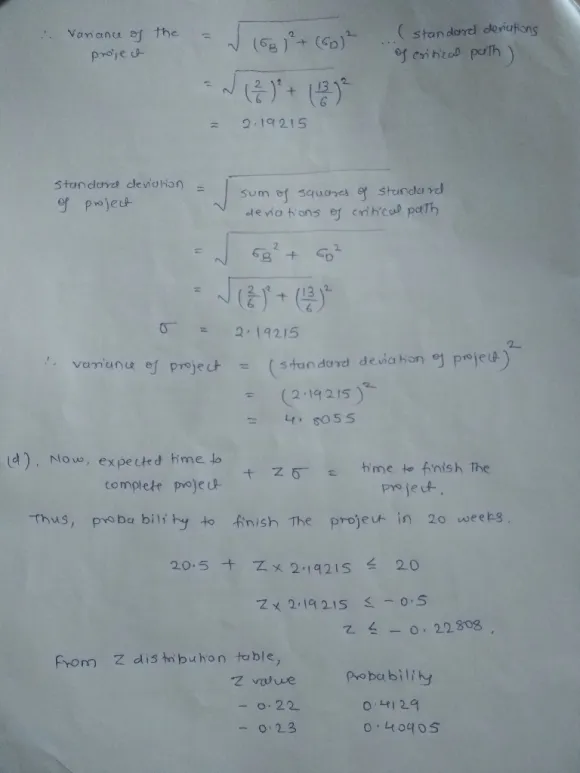 ∴ Variance of the project = √((σB)² + (σD)²) ... (standard deviations of critical path)
= √((2/6)² + (13/6)²)
= 2.19215
Standard deviation of project = √(sum of squares of standard deviations of critical path)
= √(σB² + σD²)
= √((2/6)² + (13/6)²)
σ = 2.19215
∴ variance of project = (standard deviation of project)²
= (2.19215)²
= 4.8055
(d). Now, expected time to complete project + Zσ = time to finish the project.
Thus, probability to finish the project in 20 weeks.
20.5 + Z × 2.19215 ≤ 20
Z × 2.19215 ≤ - 0.5
Z ≤ - 0.22808.
From Z distribution table,
Z value Probability
- 0.22 0.4129
- 0.23 0.40905